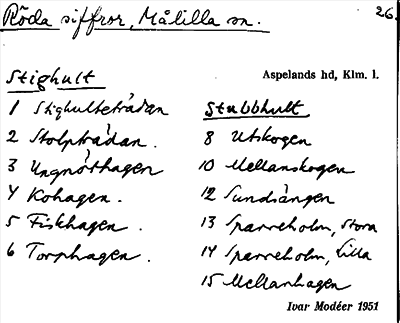 Röda siffror, Målilla sn.
26.
Aspelands hd, Klm. l.
Stighult
1 Stighultetrådan
2 Stolptrådan.
3 Ungnöthagen
4 Kohagen.
5 Fiskhagen.
6 Torphagen.
Stubbhult
8 Utskogen
10 Mellanskogen
12 Sundsängen
13 Sparreholm, Stora
14 Sparreholm, Lilla
15 Mellanhagen
Ivar Modéer 1951